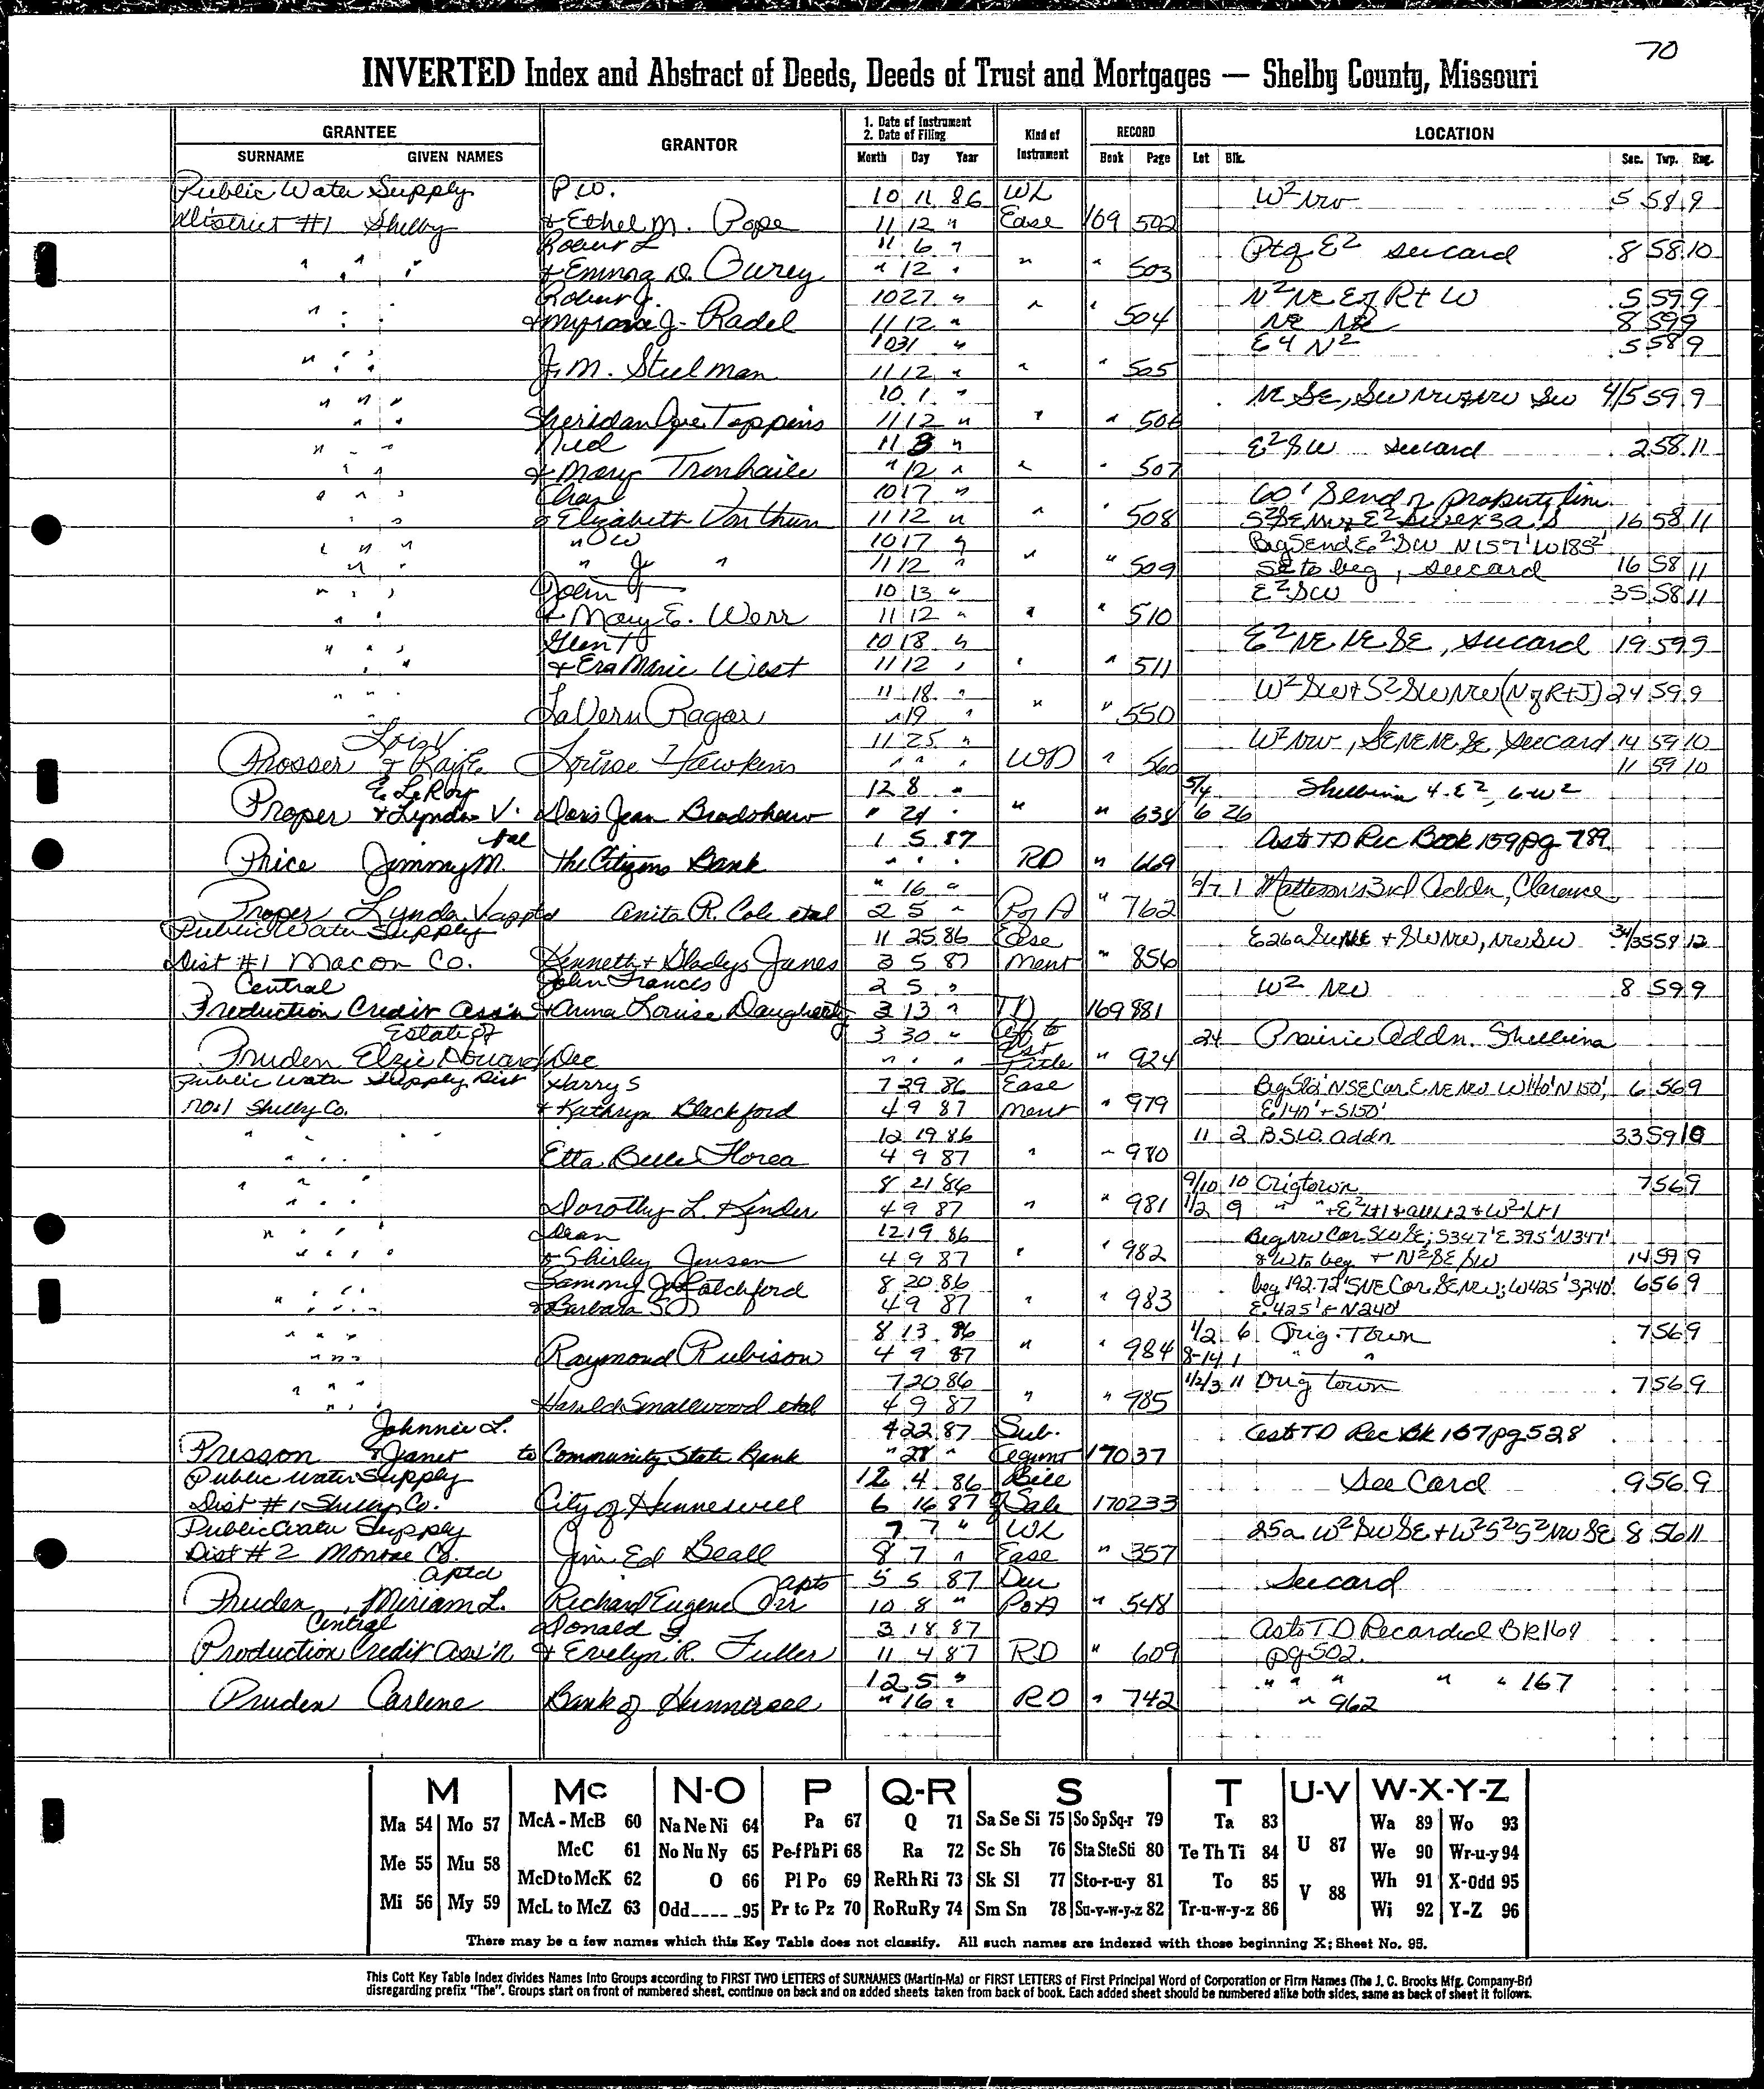 70
INVERTED Index and Abstract of Deeds, Deeds of Trust and Mortgages — Shelby County, Missouri
GRANTEE GRANTOR 1. Date of Instrument 2. Date of Filing Kind of Instrument RECORD LOCATION
SURNAME GIVEN NAMES Month Day Year Book Page Lot Blk. Sec. Twp. Rng.
Public Water Supply P W. 10 11 86 WL W2 NW 5 58 9
District #1 Shelby & Ethel M. Pope 11 12 " Ease 169 502
Robert L 11 6 " Ptg E2 see card 8 58 10
" " " & Emma D. " 12 " " " 503
Robert J. 10 27 " N2 NE E of R+W 5 59 9
" " " & Myrna J. Radel 11 12 " " " 504 NE NE 8 59 9
10 31 " E 4 N2 5 58 9
" " " J. M. Steelman 11 12 " " " 505
10 1 " NE SE, SW NW & NW SW 4/5 59 9
" " " Sheridan Toppins 11 12 " " " 506
Ned 11 3 " E2 SW see card 2 58 11
" " " & Mary Trenhaile " 12 " " " 507
Chas 10 17 " 60' S end property line
" " " & Elizabeth Von Thun 11 12 " " " 508 16 58 11
10 17 " Beg S end E2 SW N 157' W 185 2'
" " " " Jr " 11 12 " " " 509 SE to beg, see card 16 58 11
John F 10 13 " E2 SW 35 58 11
" " " & Mary E. Werr 11 12 " " " 510
Glen 10 18 " E2 NE NE SE, see card 19 59 9
" " " & Era Marie West 11 12 " " " 511
11 18 " W2 SW + S2 SW NW (N of R+J) 24 59 9
" " " LaVern Ragar " 19 " " " 550
Lois V 11 25 " W2 NW, SE NE NE SE, see card 14 59 10
Prosser & Louise Hawkins " " " WD " 560 11 59 10
E. LeRoy 12 8 " 5/4 Shelbina 4-E2, 6-W2
Proper & Lynda V. Doris Jean Bradshaw " 24 " " " 638 6 26
et al 1 5 87 As to TD Rec Book 159 pg 789
Price Jimmy M. The Citizens Bank " " " RD " 669
" 16 " 6/7 1 Matteson's 3rd Addn, Clarence
Proper Lynda V apptd Anita R. Cole et al 2 5 " P of A " 762
Public Water Supply 11 25 86 Ease E 26a SW NE + SW NW, NW SW 34/35 58 12
Dist #1 Macon Co. Kenneth & Gladys Janes 3 5 87 ment " 856
Central John Francis 2 5 " W2 NW 8 59 9
Production Credit Ass'n & Anna Louise Daugherty 3 13 " TD 169 881
Estate of 3 30 " Aff to 24 Prairie Addn. Shelbina
Pruden Elzie Howard Dec " " " Est Title " 924
Public Water Supply Dist Harry S 7 29 86 Ease 6 56 9
No. 1 Shelby Co. & Kathryn Blackford 4 9 87 ment " 979 E 140' + S 150'
12 19 86 11 2 B.S.W. Addn 33 59 10
" " " Etta Belle Florea 4 9 87 " " 980
8 21 86 9/10 10 Origtown 7 56 9
" " " Dorothy L. Kender 4 9 87 " " 981 1/2 9 " " + E2 Lt 1 + all Lt 2 + W2 Lt 1
Dean 12 19 86 Beg NW Cor SW SE; S 347' E 395' N 347'
" " " & Shirley Jensen 4 9 87 " " 982 & W to beg + N2 SE SW 14 59 9
Sammy J. Latchford 8 20 86 beg 192.72' S NE Cor SE NW; W 425' S 240' 6 56 9
" " " & Barbara S 4 9 87 " " 983 E 425' & N 240'
8 13 86 1/2 6 Orig. Town 7 56 9
" " " Raymond Rubison 4 9 87 " " 984 8-14 1 " "
7 20 86 1/2/3 11 Orig town 7 56 9
" " " Harold Smallwood et al 4 9 87 " " 985
Johnnie L. 4 22 87 Sub. As to TD Rec Bk 167 pg 528
Presson & Janet to Community State Bank " 28 " Agmt 170 37
Public Water Supply 12 4 86 Bill See Card 9 56 9
Dist #1 Shelby Co. City of Hunnewell 6 16 87 of Sale 170 233
Public Water Supply 7 7 " WL 25a W2 SW SE + W2 S2 S2 NW SE 8 56 11
Dist #2 Monroe Co. Jim Ed Beall 8 7 " Ease " 357
aptd apts 5 5 87 Dur See card
Pruden, Miriam L. Richard Eugene Orr 10 8 " PofA " 548
Central Donald G 3 18 87 As to TD Recorded BK 168
Production Credit Ass'n & Evelyn R. Fuller 11 4 87 RD " 609 pg 502.
12 5 " " " " " " 167
Pruden Carlene Bank of Hunnewell " 16 " RD " 742 " 962
M Mc N-O P Q-R S T U-V W-X-Y-Z
Ma 54 Mo 57 McA - McB 60 Na Ne Ni 64 Pa 67 Q 71 Sa Se Si 75 So Sp Sq-r 79 Ta 83 U 87 Wa 89 Wo 93
Me 55 Mu 58 McC 61 No Nu Ny 65 Pe-f Ph Pi 68 Ra 72 Sc Sh 76 Sta Ste Sti 80 Te Th Ti 84 V 88 We 90 Wr-u-y 94
McD to McK 62 O 66 Pl Po 69 Re Rh Ri 73 Sk Sl 77 Sto-r-u-y 81 To 85 Wh 91 X-Odd 95
Mi 56 My 59 McL to McZ 63 Odd____95 Pr to Pz 70 Ro Ru Ry 74 Sm Sn 78 Su-v-w-y-z 82 Tr-u-w-y-z 86 Wi 92 Y-Z 96
There may be a few names which this Key Table does not classify. All such names are indexed with those beginning X; Sheet No. 95.
This Cott Key Table Index divides Names into Groups according to FIRST TWO LETTERS of SURNAMES (Martin-Ma) or FIRST LETTERS of First Principal Word of Corporation or Firm Names (The J. C. Brooks Mfg. Company-Br)
disregarding prefix "The". Groups start on front of numbered sheet, continue on back and on added sheets taken from back of book. Each added sheet should be numbered alike both sides, same as back of sheet it follows.